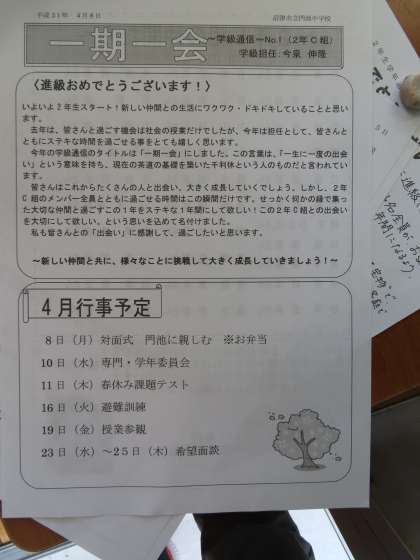 平成31年 4月8日 沼津市立門池中学校
一期一会
～学級通信～No.1(2年C組)
学級担任:今泉 伸隆
〈進級おめでとうございます!〉
いよいよ2年生スタート!新しい仲間との生活にワクワク・ドキドキしていることと思います。
去年は、皆さんと過ごす機会は社会の授業だけでしたが、今年は担任として、皆さんとともにステキな時間を過ごせる事をとても嬉しく思います。
今年の学級通信のタイトルは「一期一会」にしました。この言葉は、『一生に一度の出会い』という意味を持ち、現在の茶道の基礎を築いた千利休という人のものだと言われています。
皆さんはこれからたくさんの人と出会い、大きく成長していくでしょう。しかし、2年C組のメンバー全員とともに過ごせる時間はこの瞬間だけです。せっかく何かの縁で集った大切な仲間と過ごすこの1年をステキな1年間にして欲しい!この2年C組との出会いを大切にして欲しい、という思いを込めて名付けました。
私も皆さんとの「出会い」に感謝して、過ごしたいと思います。
～新しい仲間と共に、様々なことに挑戦して大きく成長していきましょう!～
4月行事予定
8日(月)対面式 門池に親しむ ※お弁当
10日(水)専門・学年委員会
11日(木)春休み課題テスト
16日(火)遊難訓練
19日(金)授業参観
23日(水)～25日(木)希望面談